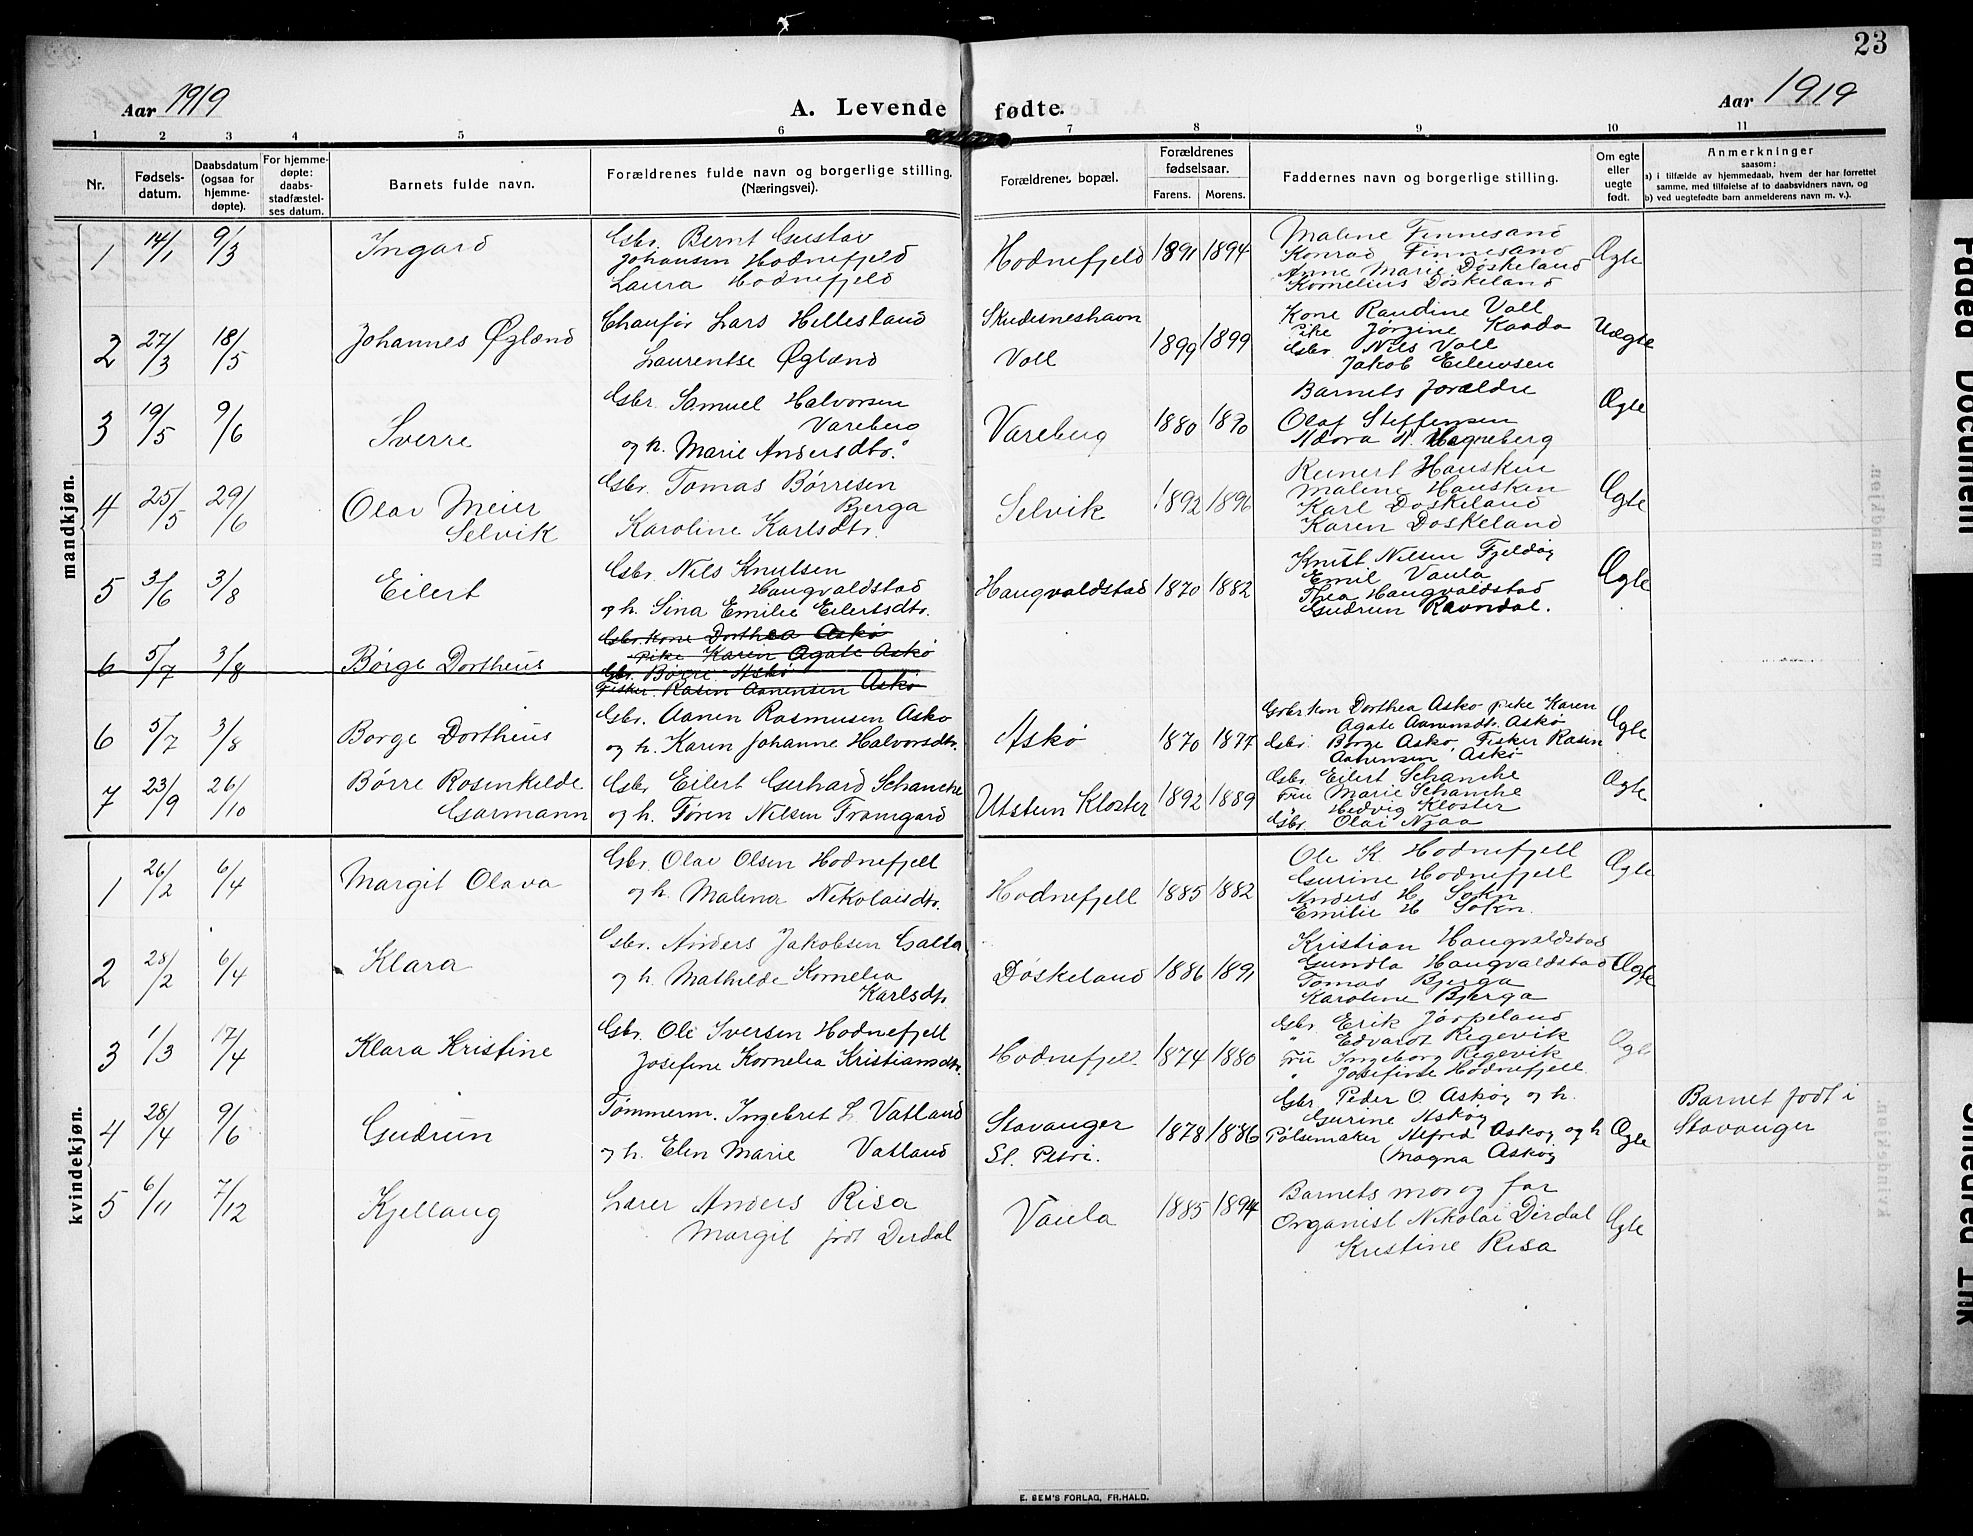 23
Aar 1919
A. Levende fødte.
Aar 1919
1 2 3 4 5 6 7 8 9 10 11
Nr.
Fødsels-
datum.
Daabsdatum
(ogsaa for
hjemme-
døpte).
For hjemme-
døpte:
daabs-
stadfæstel-
ses datum.
Barnets fulde navn.
Forældrenes fulde navn og borgerlige stilling.
(Næringsvei).
Forældrenes bopæl.
Forældrenes
fødselsaar.
Farens. Morens.
Faddernes navn og borgerlige stilling.
Om egte
eller
uegte
født.
Anmerkninger
saasom:
a) i tilfælde av hjemmedaab, hvem der har forrettet
samme, med tilføielse af to daabsvidners navn, og
b) ved uegtefødte barn anmelderens navn m. v.).
mandkjøn.
1 14/1 9/3 Ingard
Gbr. Bernt Gustav
Johansen Hodnefjeld
Laura Hodnefjeld
Hodnefjeld 1891 1894
Malene Finnesand
Konrad Finnesand
Anne Marie Døskeland
Kornelius Døskeland
Ægte
2 27/3 18/5 Johannes Øglænd
Chaufør Lars Hillesland
Laurentse Øglænd
Skudesneshavn
Voll
1899 1899
Kone Raudine Voll
Pike Jørgine Kaada
Gbr. Nils Voll
Jakob Eilevsen
Uægte
3 19/5 9/6 Sverre
Gbr. Samuel Halvorsen
Vareberg
og h. Marie Andersdtr.
Vareberg 1880 1890
Barnets forældre
Olaf Steffensen
Ndora N. Hegreberg
Ægte
4 25/5 29/6 Olav Meier
Selvik
Gbr. Tomas Børresen
Bjerga
Karoline Karlsdtr.
Selvik 1892 1896
Reinert Hausken
Malene Hausken
Karl Døskeland
Karen Døskeland
Ægte
5 3/6 3/8 Eilert
Gbr. Nils Knutsen
Haugvaldstad
og h. Sina Emilie Eilertsdtr.
Haugvaldstad 1870 1882
Knut Nilsen Fjeldøy
Emil Vaula
Thea Haugvaldstad
Gudrun Ravndal.
Ægte
6 5/7 3/8 Børge Dortheus
Gbr. kone Dorthea Askø
Pike Karin Agate Askø
Gbr. Børre Askø
Fisker Rasin Aanensen Askø
6 5/7 3/8 Børge Dortheus
Gbr. Aanen Rasmusen Askø
og h. Karen Johanne Halvorsdtr.
Askø 1870 1877
Gbrkon Dorthea Askø pike Karen
Agate Aanensdtr. Askø
Gbr. Børge Askø, Fisker Rasin
Aanensen Askø
Ægte
7 23/9 26/10 Børre Rosenkilde
Garmann
Gbr Eilert Gerhard Schanche
og h. Tøren Nilsen Tramgard
Utstein Kloster 1892 1889
Gbr. Eilert Schanche
Fru Marie Schanche
Hedvig Kloster
Gbr. Olai Njaa
Ægte
kvindekjøn.
1 26/2 6/4 Margit Olava
Gbr. Olav Olsen Hodnefjell
og h. Malena Nikolaisdtr.
Hodnefjell 1885 1882
Ole K. Hodnefjell
Gurine Hodnefjell
Anders H Sokn
Emilie H Sokn.
Ægte
2 28/2 6/4 Klara
Gbr. Anders Jakobsen Galta
og h. Mathilde Kornelia
Karlsdtr
Døskeland 1886 1891
Kristian Haugvaldstad
Gundla Haugvaldstad
Tomas Bjerga
Karoline Bjerga
Ægte
3 1/3 17/4 Klara Kristine
Gbr. Ole Iversen Hodnefjell
Josefine Kornelia Kristiansdtr.
Hodnefjell 1874 1880
Gbr. Erik Jørpeland
" Edvardt Regevik
Fru Ingeborg Regevik
" Josefine Hodnefjell
Ægte
4 28/4 9/6 Gudrun
Tømmerm. Ingebret L. Vatland
og h. Elen Marie Vatland
Stavanger
St. Petri.
1878 1886
Gbr. Peder O Askøy og h.
Gurine Askøy
Pølsemaker Alfred Askøy og h
(Magna Askøy
Ægte
Barnet født i
Stavanger
5 6/11 7/12 Kjellaug
Lærer Anders Risa
Margit født Dirdal
Vaula 1885 1894
Barnets mor og far
Organist Nikolai Dirdal
Kristine Risa
Ægte
E. SEM'S FORLAG, FR.HALD.
Faded Document
Smeared Ink